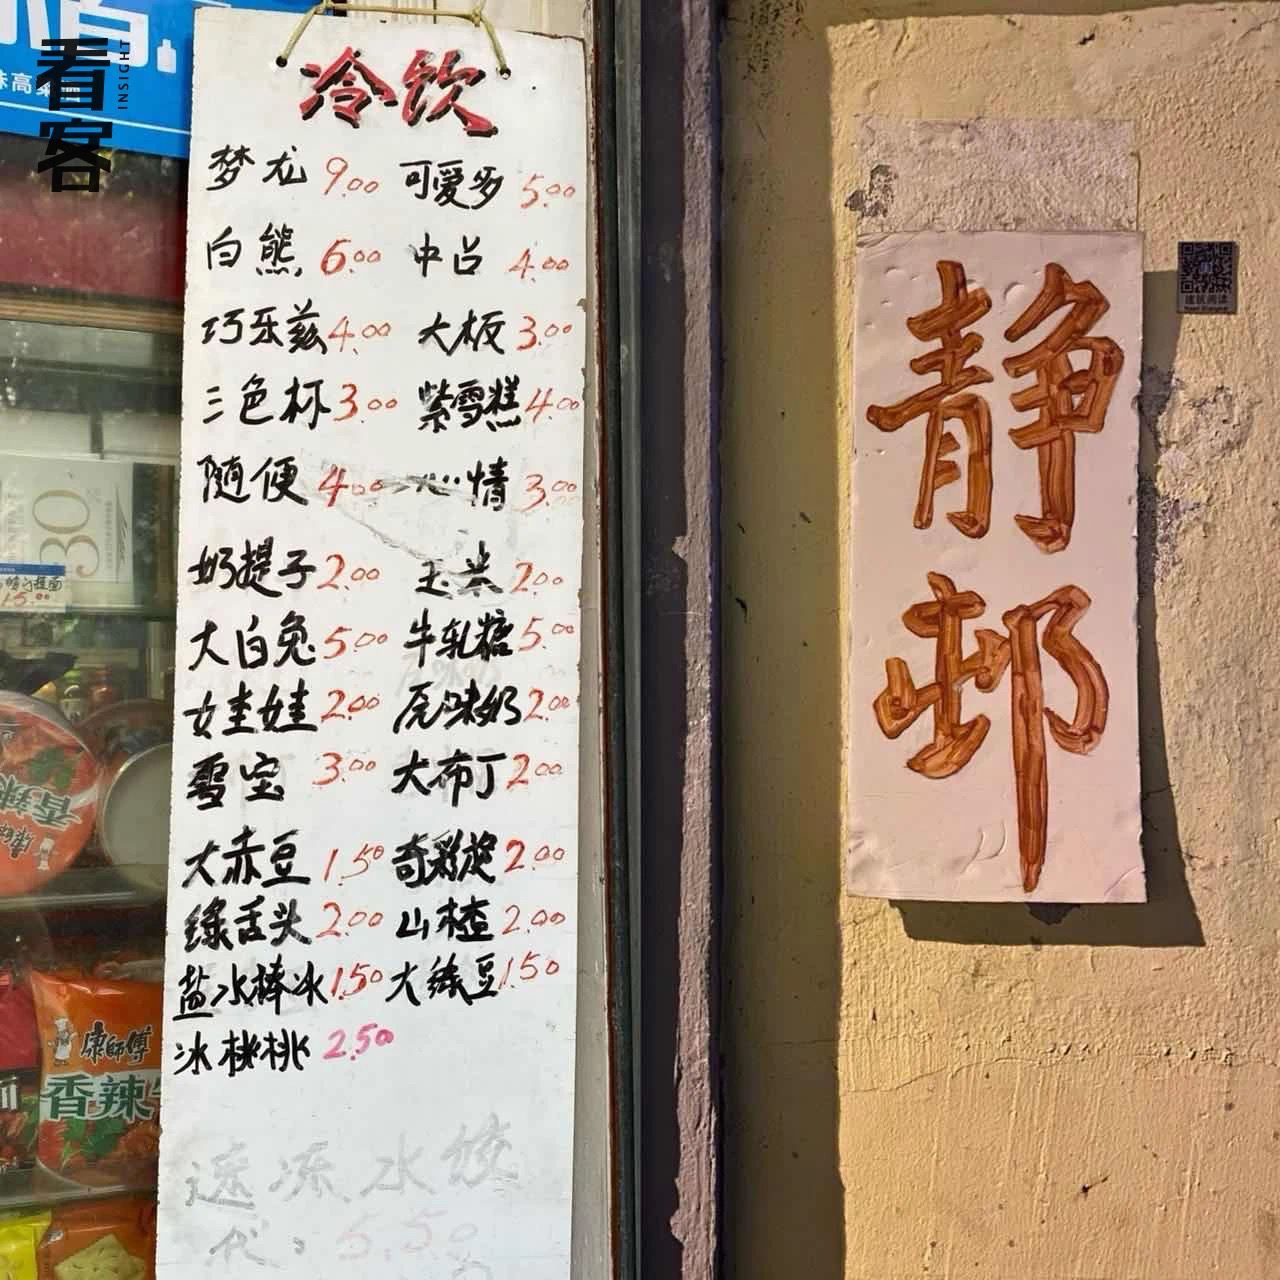 看客
INSIGHT
冷饮
梦龙 9.00 可爱多 5.00
白熊 6.00 中吕 4.00
巧乐兹 4.00 大板 3.00
三色杯 3.00 紫雪糕 4.00
随便 4.00 心情 3.00
奶提子 2.00 玉米 2.00
大白兔 5.00 牛轧糖 5.00
娃娃 2.00 原味奶 2.00
雪宝 3.00 大布丁 2.00
大赤豆 1.50 奇彩旋 2.00
绿舌头 2.00 山楂 2.00
盐水棒冰 1.50 大绿豆 1.50
冰桃桃 2.50
速冻水饺
代 5.50
静邨
建筑阅读
30
15.00
康師傅
香辣
香辣